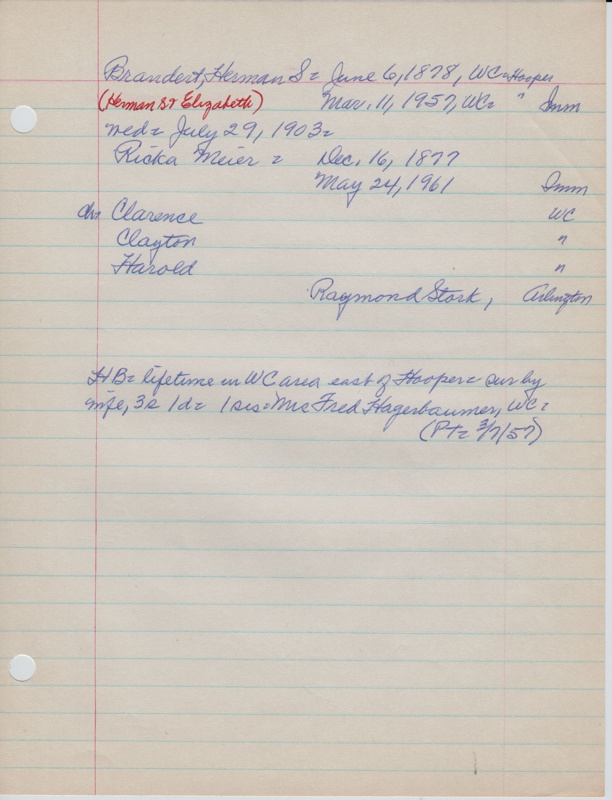 Brandert, Herman S = June 6, 1878, WC = Hooper
(Herman sr Elizabeth) Mar. 11, 1957, WC = " Imm
wed = July 29, 1903 =
Ricka Meier = Dec. 16, 1877
May 24, 1961 Imm
ch = Clarence WC
Clayton "
Harold "
Raymond Stork, Arlington
HB = lifetime in WC area east of Hooper = sur by
wife, 3s 1d = 1 sis = Mrs Fred Hagerbaumer, WC =
(PT = 3/7/57)